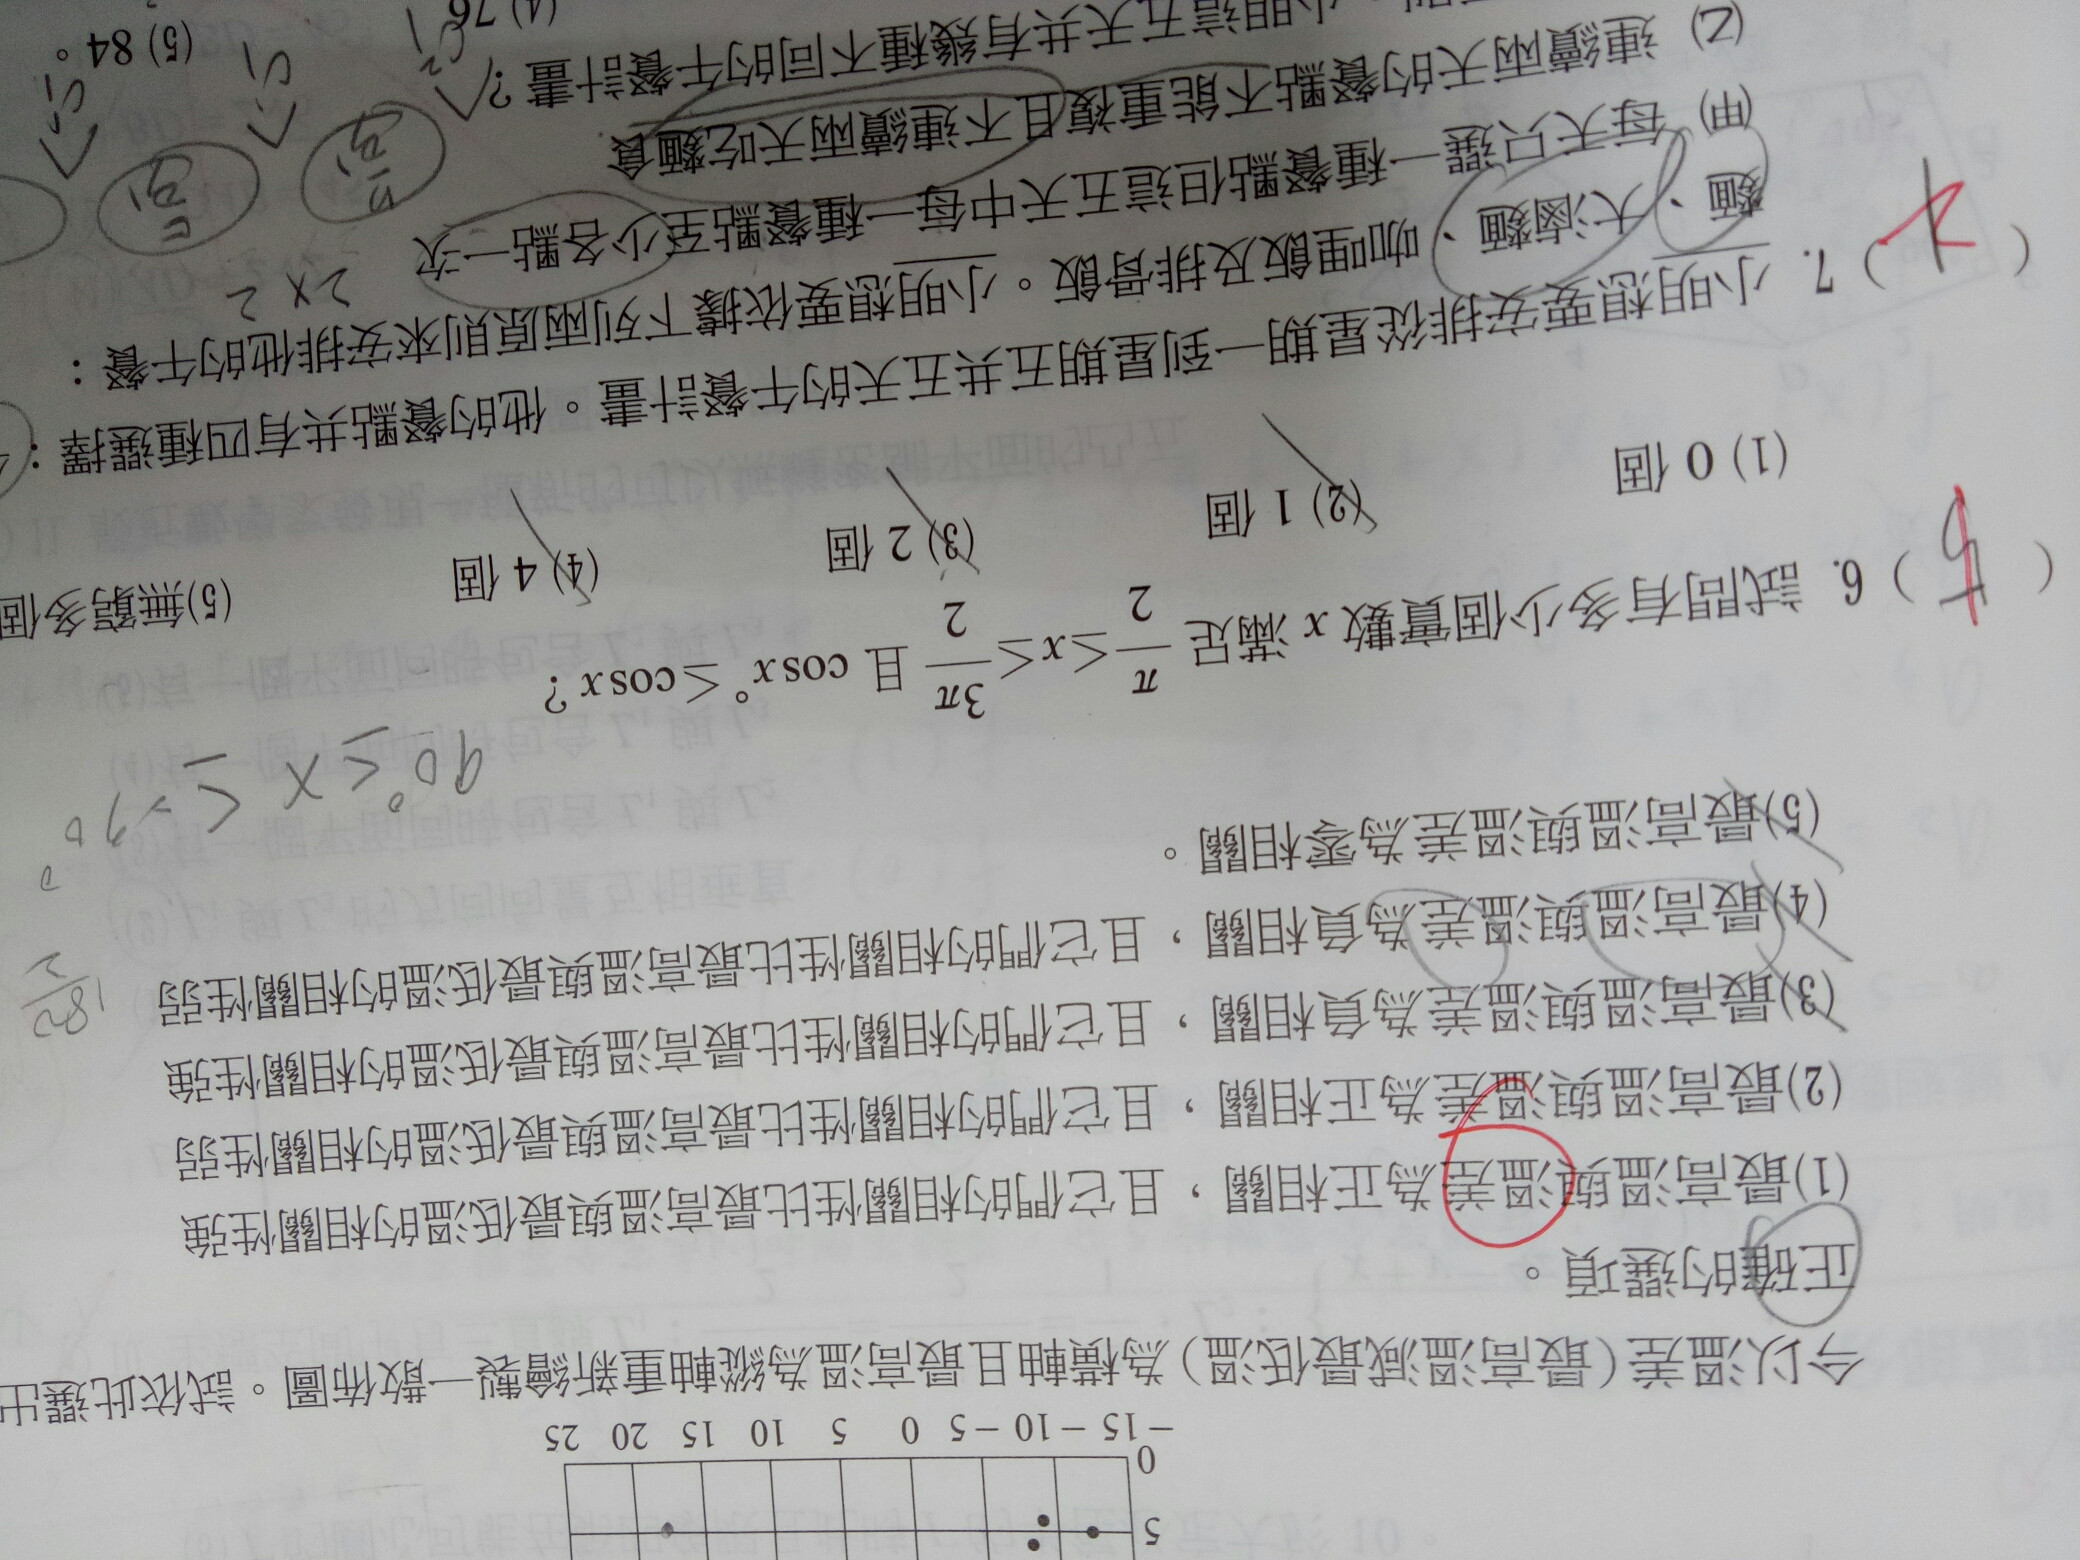 5
0
-15 -10 -5 0 5 10 15 20 25
今以溫差(最高溫減最低溫)為橫軸且最高溫為縱軸重新繪製一散佈圖。試依此選出
正確的選項。
(1)最高溫與溫差為正相關,且它們的相關性比最高溫與最低溫的相關性強
(2)最高溫與溫差為正相關,且它們的相關性比最高溫與最低溫的相關性弱
(3)最高溫與溫差為負相關,且它們的相關性比最高溫與最低溫的相關性強
(4)最高溫與溫差為負相關,且它們的相關性比最高溫與最低溫的相關性弱
(5)最高溫與溫差為零相關。
182
2
90° ≤ x ≤ 270°
( 5 ) 6. 試問有多少個實數 x 滿足 π/2 ≤ x ≤ 3π/2 且 cos x° ≤ cos x?
(1) 0 個 (2) 1 個 (3) 2 個 (4) 4 個 (5)無窮多個
( 4 ) 7. 小明想要安排從星期一到星期五共五天的午餐計畫。他的餐點共有四種選擇:
麵、大滷麵、咖哩飯及排骨飯。小明想要依據下列兩原則來安排他的午餐:
2 x 2
(甲) 每天只選一種餐點但這五天中每一種餐點至少各點一次
(乙) 連續兩天的餐點不能重複且不連續兩天吃麵食
小明這五天共有幾種不同的午餐計畫?
(4) 76 (5) 84。